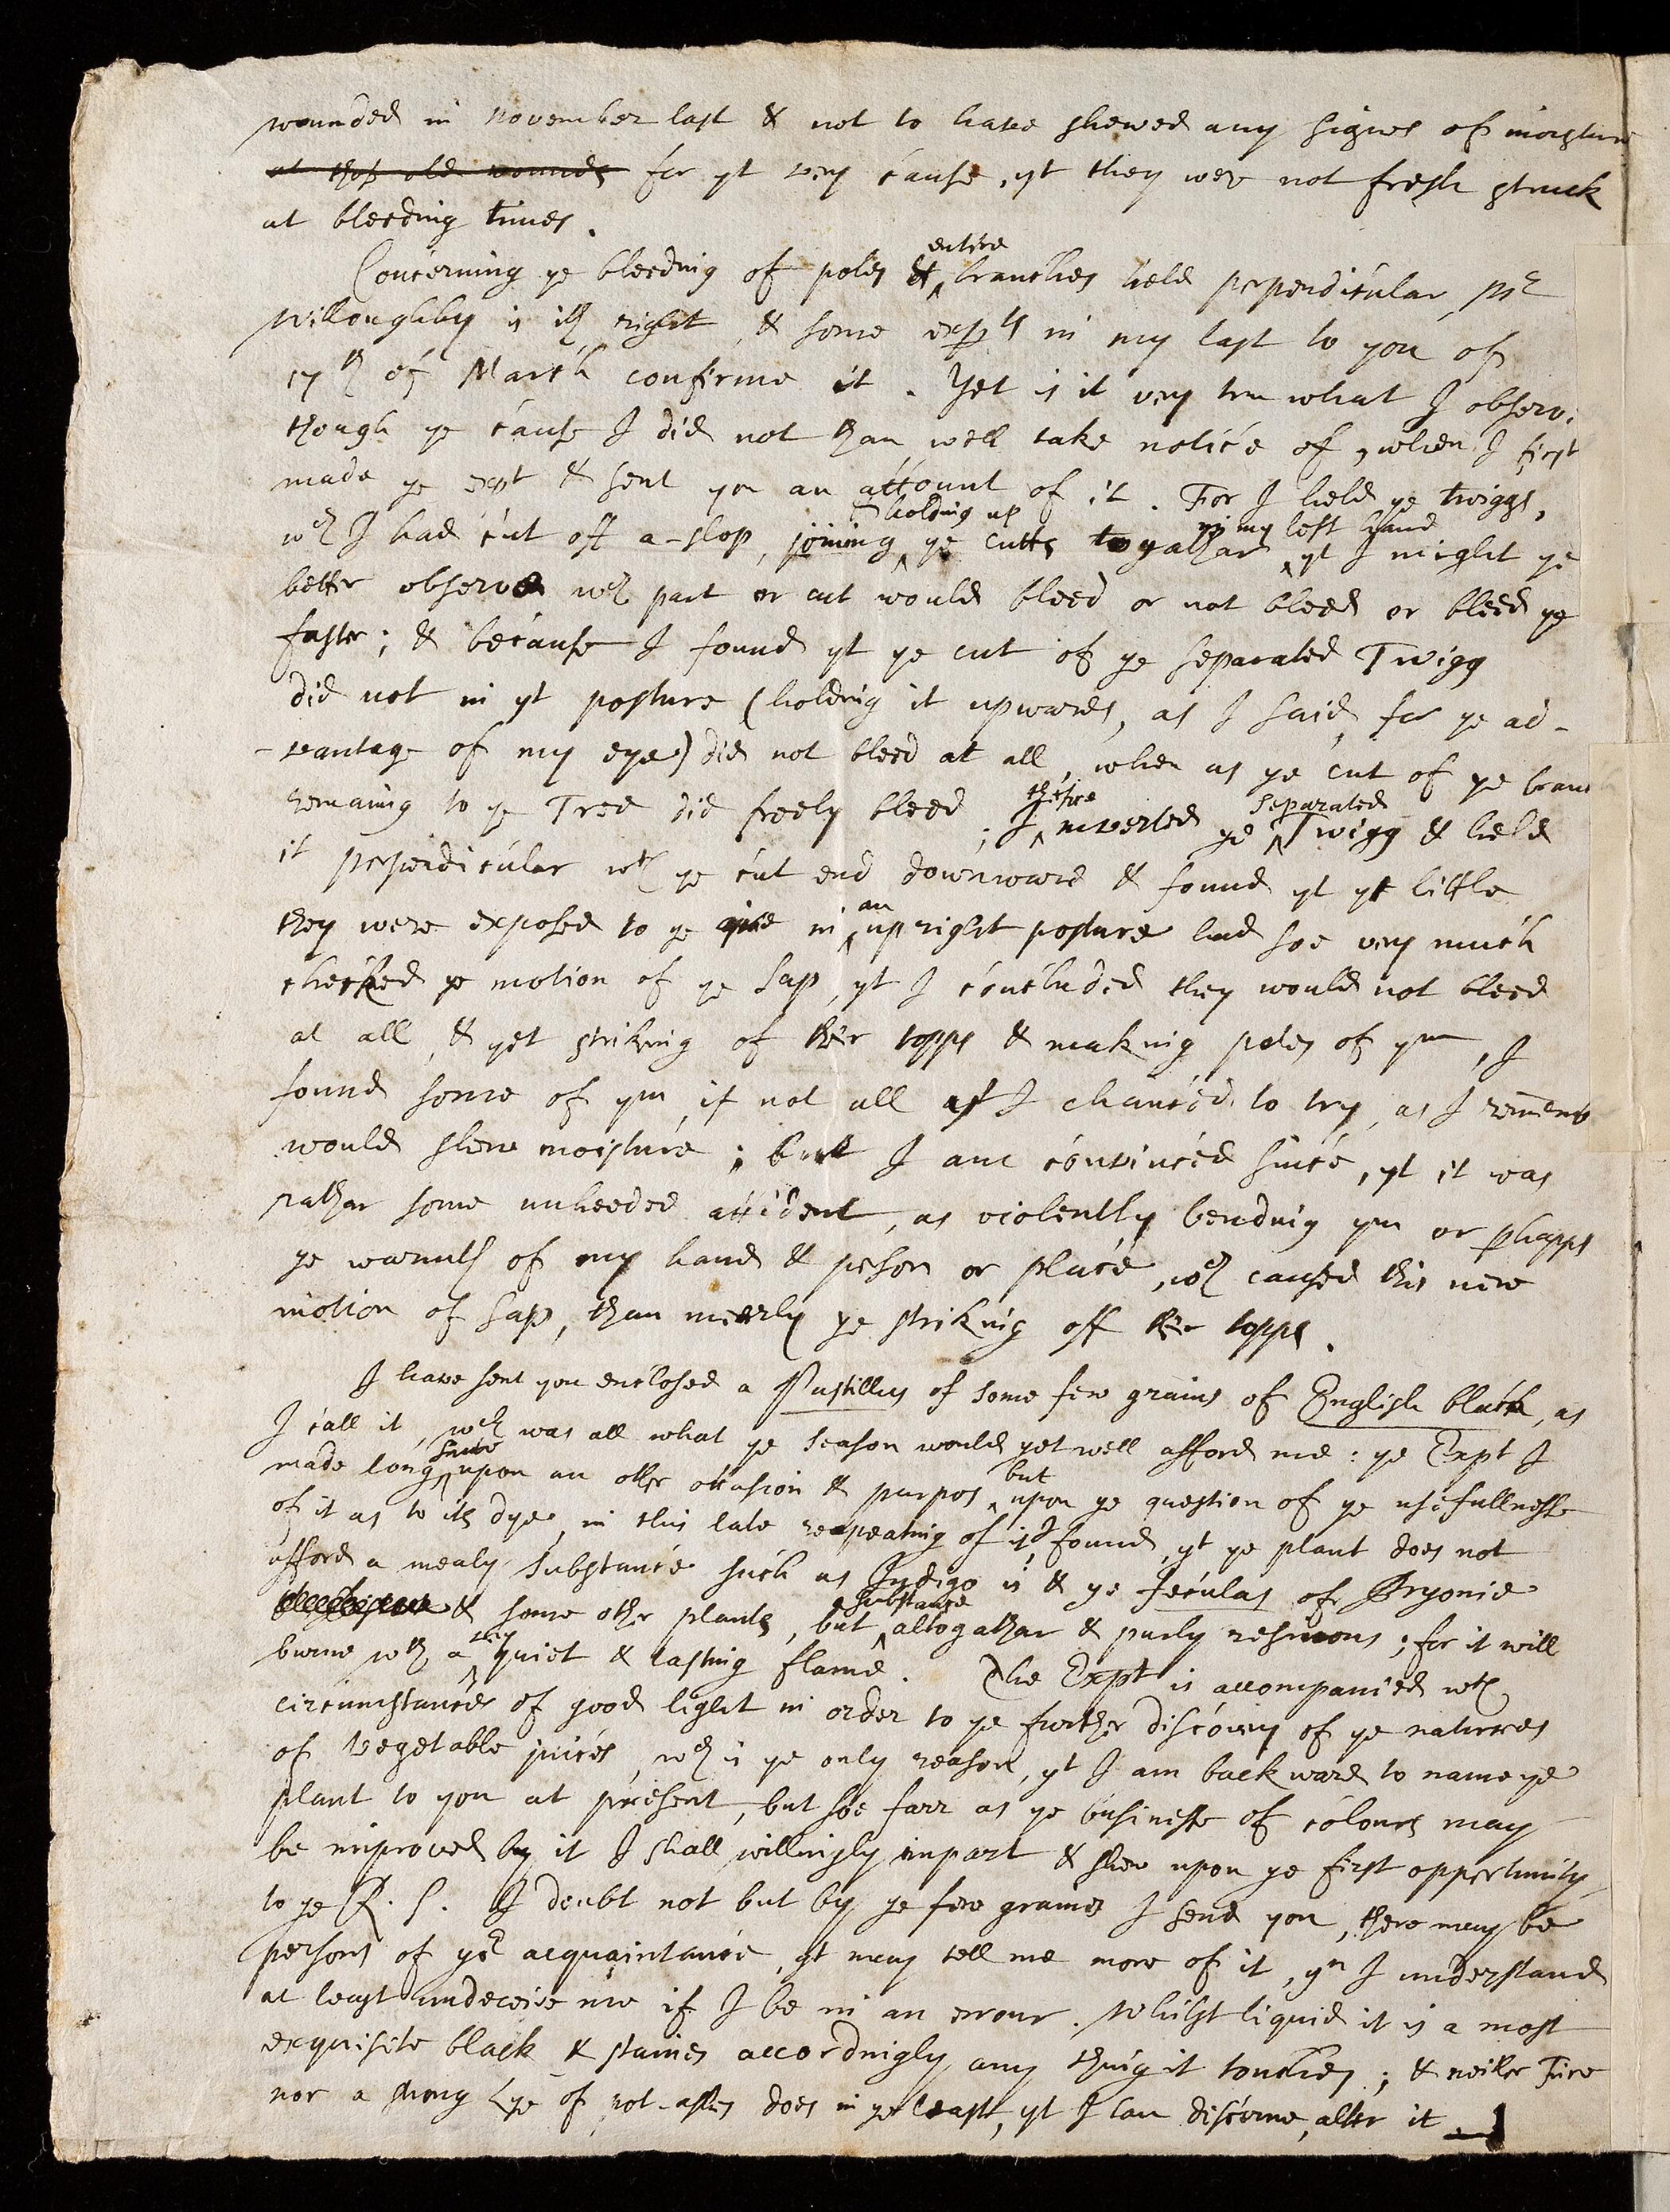 wounded in November last & not to have shewed any signes of moysture
at thos old wounds for yt very cause, yt they wer not fresh struck
at bleeding times.
Concerning ye bleeding of poles & entire branches held perpendicular, Mr
Willoughby is ith right, & some expts in my last to you of
17th of March confirme it. Yet is it very tru what I observ:
though ye cause I did not than well take notice of, when I first
made ye expt & sent you an account of it. For I held ye twiggs,
wch I had cut off a-slop, joining & holding up ye cutts togathar in my left hand yt I might ye
better observe wch part or cut would bleed or not bleed or bleed ye
faster; & because I found yt ye cut of ye separated Twigg
did not in yt posture (holding it upwards, as I said, for ye ad-
-vantage of my eye) did not bleed at all, when as ye cut of ye branch
remaing to ye Tree did freely bleed; I thefore inverted ye separated Twigg & held
it perpendicular wth ye cut end downward & found yt yt little
they were exposed to ye in an upright posture had soe very much
checked ye motion of ye Sap, yt I concluded they would not bleed
at all, & yet striking of their topps & making poles of ym, I
found some of ym, if not all yt I chanced to try, as I rememb
would shew moisture; but I am convinced since, yt it was
rathar some unheeded accident, as violently bending ym or phapps
ye warmth of my hand & person or place, wch caused this new
motion of Sap, than meerly ye striking off their topps.
I have sent you enclosed a Pastillus of some few grains of English black, as
I call it, wch was all what ye season would yet well afford me: ye Expt I
made long since upon an other occasion & purpos but upon ye question of ye usefullnesse
of it as to its dye, in this late reapeating of it I found, yt ye plant does not
afford a mealy substance such as Indigo is & ye feculas of Bryonie
& some other plants, but a substance altogathar & purly resinous; for it will
burne wth a very quiet & lasting flame. The Expt is accompanied wth
circumstances of good light in order to ye further discovery of ye natures
of Vegetable juices, wch is ye only reason, yt I am backward to name ye
plant to you at present, but soe farr as ye businesse of colours may
be improved by it I shall willingly impart & shew upon ye first opportunity
to ye R. S. I doubt not but by ye few grains I send you, there may be
persons of yr acquaintance, yt may tell me more of it, yn I understand
at least undeceive me if I be in an errour. Whilst liquid it is a most
exquisite black & staines accordingly any thing it touches; & neither Fire
nor a strong Lye of pot-ashes does in ye least, yt I can discerne, alter it.